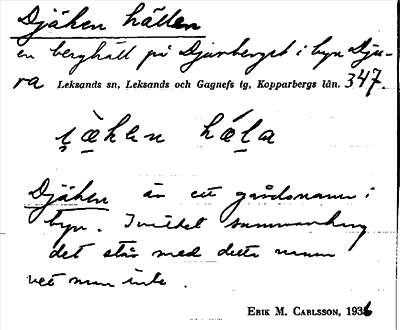 Djäken hällen
en berghäll på Djurberget i byn Dju-
ra Leksands sn, Leksands och Gagnefs tg, Kopparbergs län. 347.
hä̀la
Djäken är ett gårdsnamn i
byn. I vilket sammanhang
det står med detta namn
vet man inte.
Erik M. Carlsson, 1936